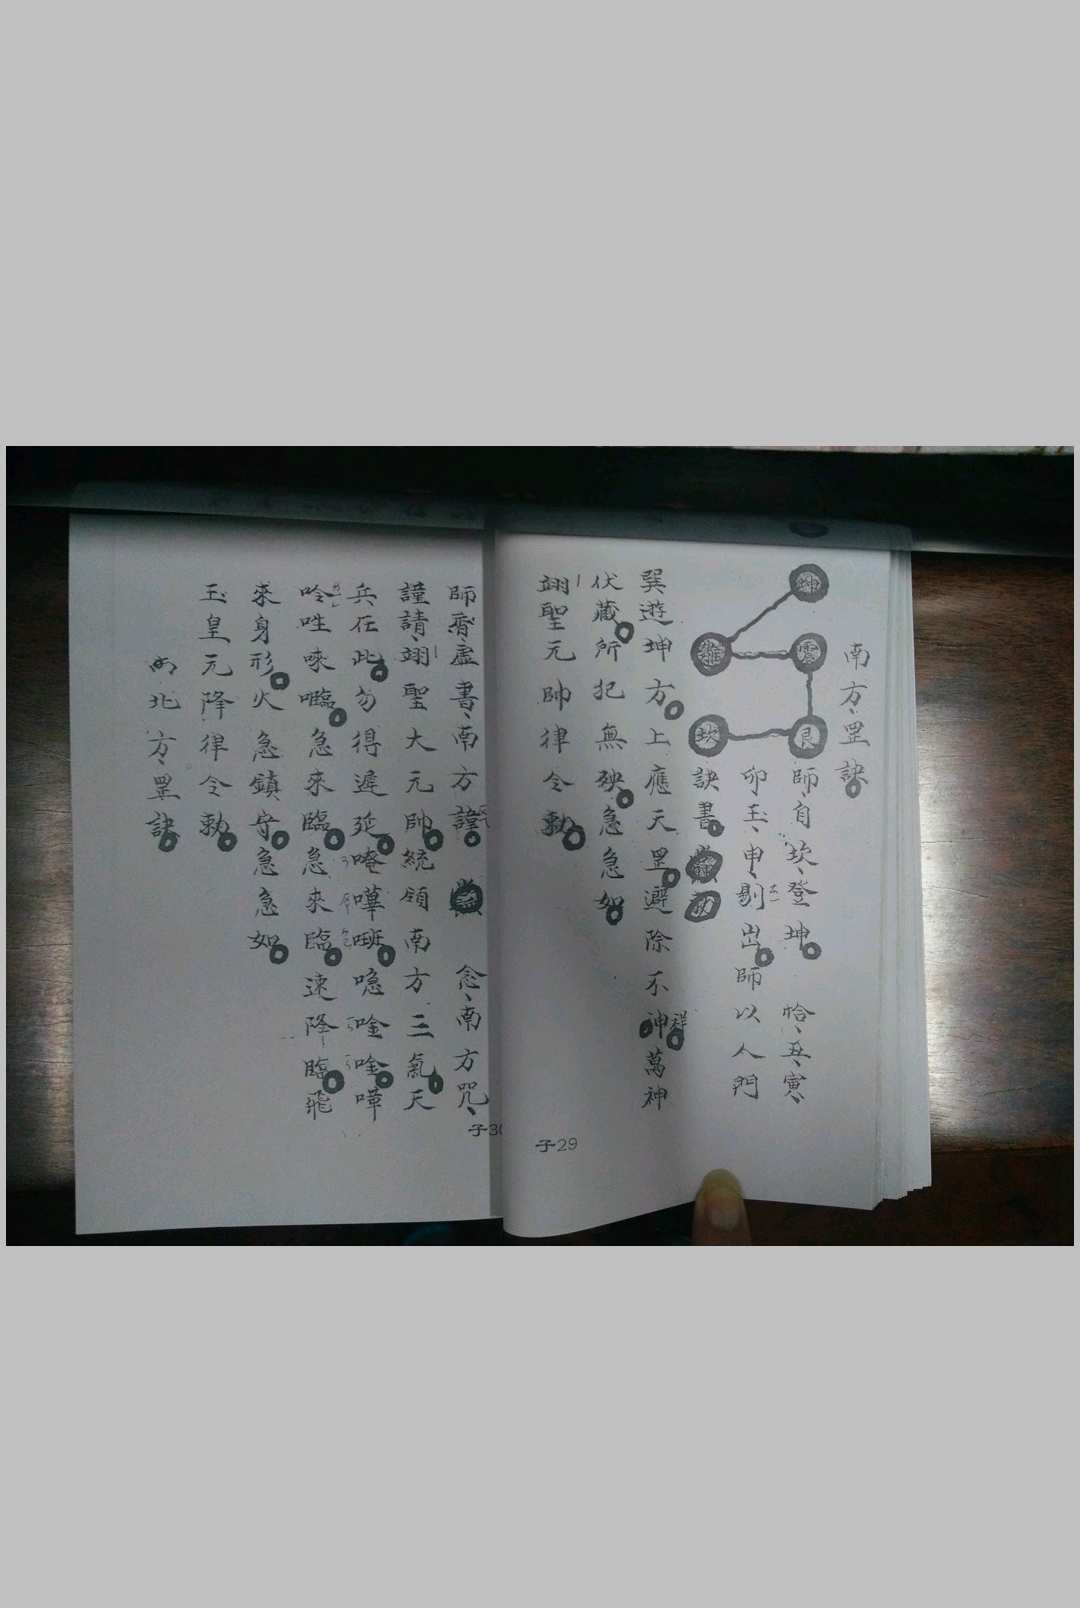 南方罡訣
坤
離 震
坎 艮
師自坎登坤 恰丑寅
卯玉申剔出師以人門
訣書
巽遊坤方上應天罡避除不祥萬神
伏藏所犯無殃急急如
翊聖元帥律令勅
子29
師齋虛書南方諱 念南方咒
謹請翊聖大元帥統領南方三氣天
兵在此勿得遲延唵嘩㘽嗯唫唫嘩
唥㕽唻㘕急來臨急來臨速降臨飛
來身形火急鎮守急急如
玉皇元降律令勅
北方罡訣
子30